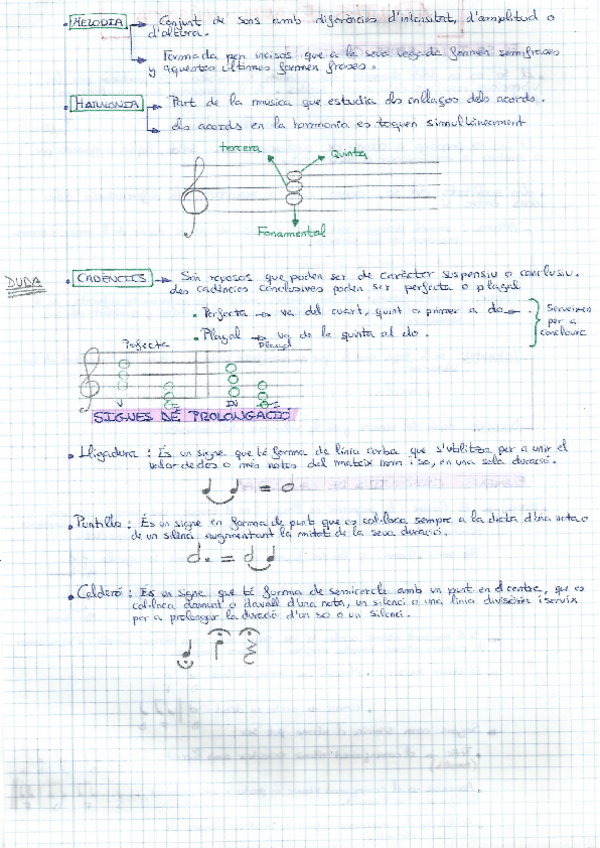 • MELODIA → Conjunt de sons amb diferències d'intensitat, d'amplitud o
d'altura.
→ Formada per incisos que a la seva vegada formen semifrases
y aquestes últimes formen frases.
• HARMONIA → Part de la musica que estudia els enllaços dels acords.
→ els acords en la harmonia es toquen simultàneament
tercera
Quinta
Fonamental
DUDA
• CADÈNCIES → Són reposos que poden ser de caràcter suspensiu o conclusiu.
les cadències conclusives poden ser perfecta o plagal
• Perfecta → va del cuart, quint o primer a do →.
• Plagal → va de la quinta al do.
Serveixen
per a
concloure
Perfecta
Plagal
V
I
IV
I
SIGNES DE PROLONGACIÓ
• Lligadura : És un signe que té forma de línia corba que s'utilitza per a unir el
valor de dos o més notes del mateix nom i so, en una sola duració.
=
• Puntillo : És un signe en forma de punt que es col·loca sempre a la dreta d'una nota o
de un silenci augmentant la mitat de la seva duració.
=
• Calderó : És un signe que té forma de semicercle amb un punt en el centre, que es
col·loca damunt o davall d'una nota, un silenci o una línia divisòria i serveix
per a prolongar la duració d'un so o un silenci.